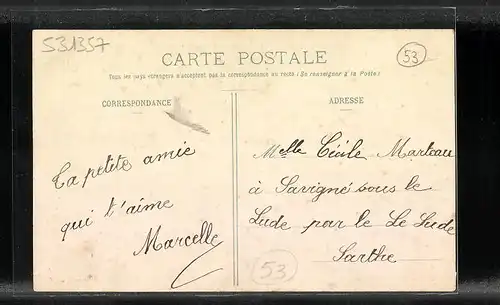 531357
53
CARTE POSTALE
Tous les pays étrangers n'acceptent pas la correspondance au recto (Se renseigner à la Poste)
CORRESPONDANCE
ADRESSE
Ta petite amie
qui t'aime
Marcelle
Melle Cécile Marteau
à Savigné sous le
Lude par le Le Lude
Sarthe
53